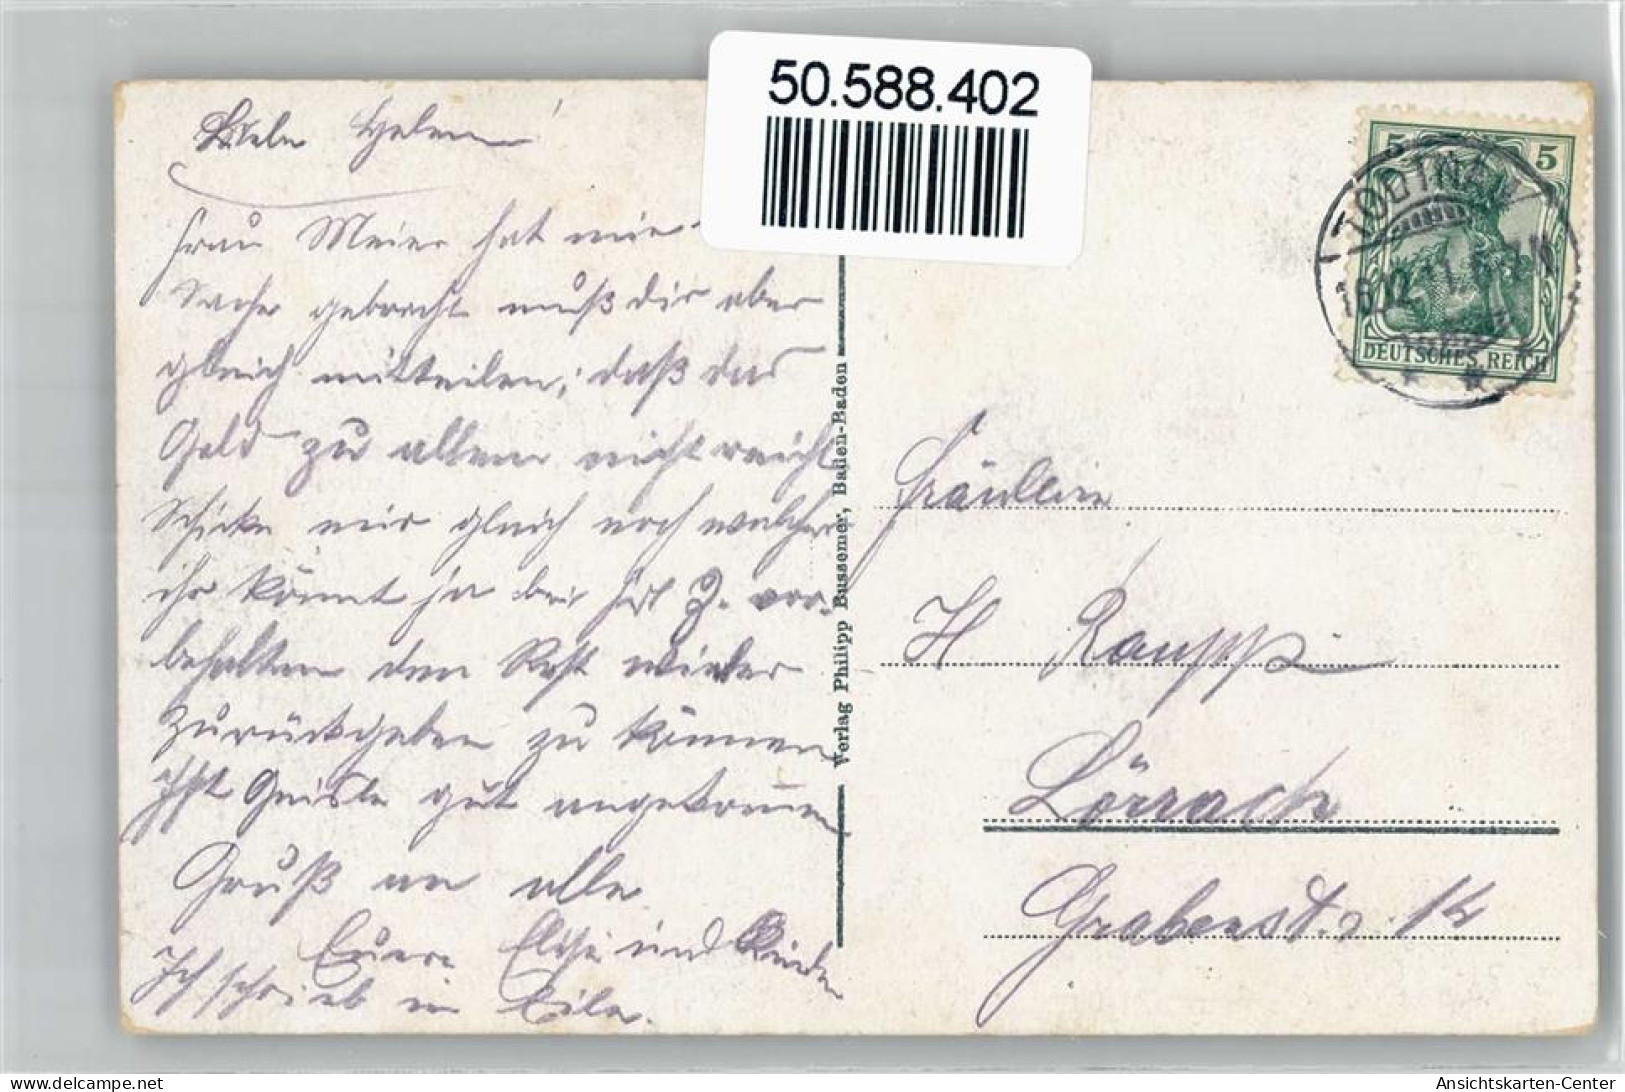 50.588.402
Liebe Helene!
Frau Meier hat mir
Sache gebracht muß dir aber
gleich mitteilen, daß das
Geld zu allem nicht reicht
Schicke mir gleich noch welches
ihr könnt ja bei Z. vor-
behalten den Rest wieder
zurückgeben zu können
gut angekommen
Gruß an alle
Eure Elise und Kinder
Ich schrieb in Eile.
Verlag Philipp Bussemer, Baden-Baden
5 5
TODTNAU
16.12.11
DEUTSCHES REICH
Fräulein
H Raupp
Lörrach
Grabenstr. 14
delcampe.net
Ansichtskarten-Center